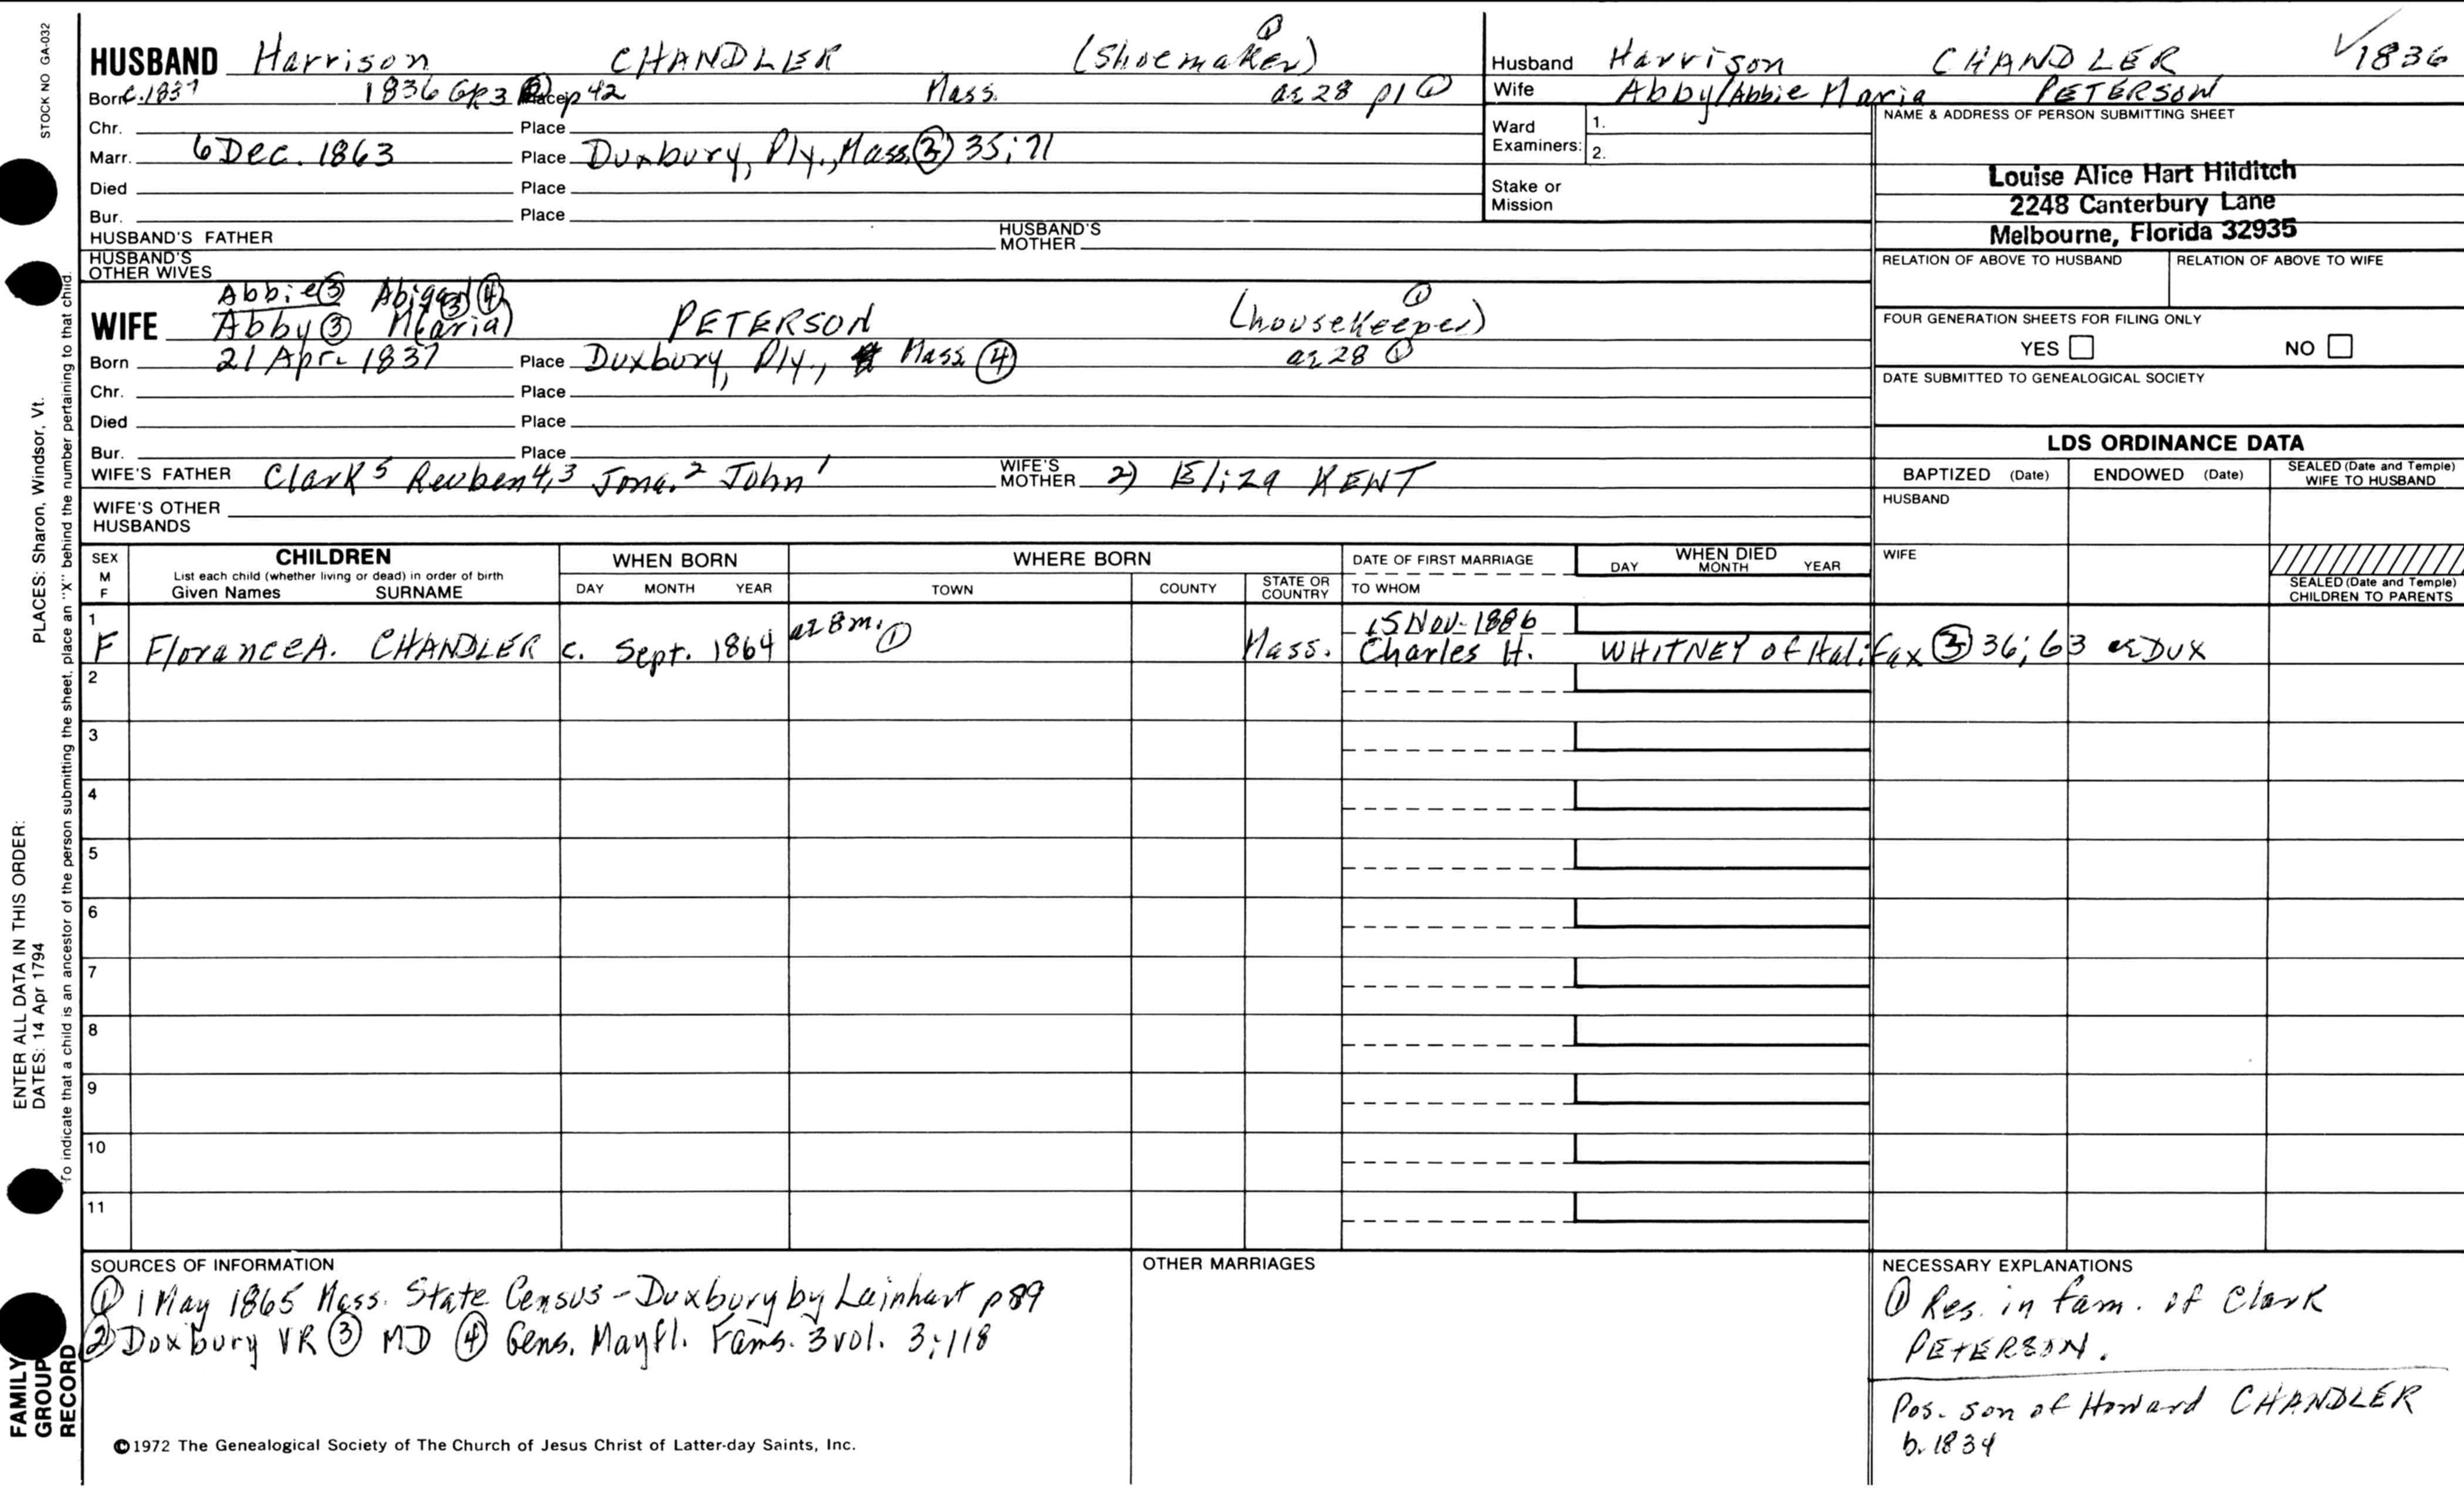 STOCK NO GA-032
PLACES: Sharon, Windsor, Vt.
ENTER ALL DATA IN THIS ORDER:
DATES: 14 Apr 1794
To indicate that a child is an ancestor of the person submitting the sheet, place an "X" behind the number pertaining to that child.
FAMILY GROUP RECORD
HUSBAND Harrison CHANDLER (Shoemaker) ①
Born c. 1837 1836 GR3 Place p 42 Mass. ae 28 p1 ①
Chr. Place
Marr. 6 Dec. 1863 Place Duxbury, Ply., Mass. ② 35;71
Died Place
Bur. Place
HUSBAND'S FATHER HUSBAND'S MOTHER
HUSBAND'S OTHER WIVES
Abbie ③ Abigail ④
WIFE Abby ③ M(aria) ③ PETERSON (housekeeper) ①
Born 21 Apr. 1837 Place Duxbury, Ply., Mass ④ ae 28 ①
Chr. Place
Died Place
Bur. Place
WIFE'S FATHER Clark 5 Reuben 4,3 Jona. 2 John 1 WIFE'S MOTHER 2) Eliza KENT
WIFE'S OTHER HUSBANDS
Husband Harrison CHANDLER √1836
Wife Abby/Abbie Maria PETERSON
Ward Examiners: 1.
2.
Stake or Mission
NAME & ADDRESS OF PERSON SUBMITTING SHEET
Louise Alice Hart Hilditch
2248 Canterbury Lane
Melbourne, Florida 32935
RELATION OF ABOVE TO HUSBAND RELATION OF ABOVE TO WIFE
FOUR GENERATION SHEETS FOR FILING ONLY
YES NO
DATE SUBMITTED TO GENEALOGICAL SOCIETY
LDS ORDINANCE DATA
BAPTIZED (Date) ENDOWED (Date) SEALED (Date and Temple) WIFE TO HUSBAND
HUSBAND
WIFE
SEALED (Date and Temple) CHILDREN TO PARENTS
SEX M F CHILDREN WHEN BORN WHERE BORN DATE OF FIRST MARRIAGE WHEN DIED
List each child (whether living or dead) in order of birth
Given Names SURNAME DAY MONTH YEAR TOWN COUNTY STATE OR COUNTRY TO WHOM DAY MONTH YEAR
1 ae 8 m. ① 15 Nov. 1886
F Florance A. CHANDLER c. Sept. 1864 Mass. Charles H. WHITNEY of Halifax ③ 36;63 as Dux
2
3
4
5
6
7
8
9
10
11
SOURCES OF INFORMATION
① 1 May 1865 Mass. State Census - Duxbury by Lainhart p 89
② Duxbury VR ③ MD ④ Gens. Mayfl. Fams. 3 vol. 3:118
©1972 The Genealogical Society of The Church of Jesus Christ of Latter-day Saints, Inc.
OTHER MARRIAGES
NECESSARY EXPLANATIONS
① Res. in fam. of Clark
PETERSON.
Pos. son of Howard CHANDLER
b. 1834